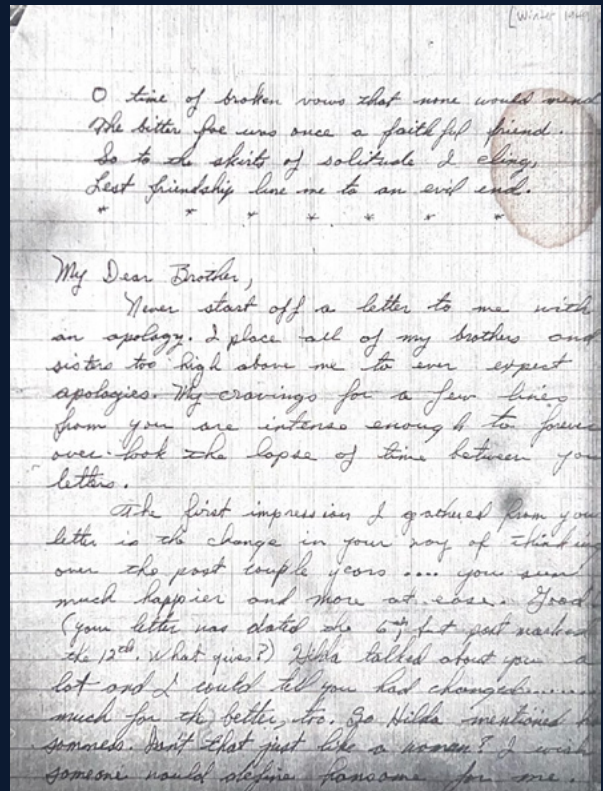 [Winter
O time of broken vows that none would mend
The bitter foe was once a faithful friend.
So to the skirts of solitude I cling,
Lest friendship lure me to an evil end.
* * * * * * *
My Dear Brother,
Never start off a letter to me with
an apology. I place all of my brothers and
sisters too high above me to ever expect
apologies. My cravings for a few lines
from you are intense enough to
over-look the lapse of time between
letters.
The first impression I gathered from
letter is the change in your way of thinking
over the past couple years .... you seem
much happier and more at ease. Good
(your letter was dated the 6th, but post marked
the 12th. What gives?) Hilda talked about you a
lot and I could tell you had changed......
much for the better, too. So Hilda mentioned
somness. Isn't that just like a woman? I wish
someone would define hansome for me.